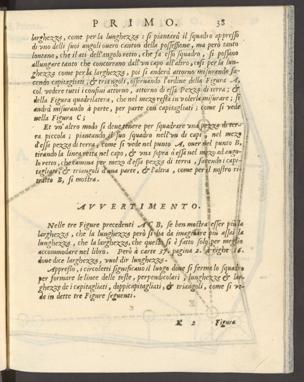 PRIMO. 38
larghezza, come per la lunghezza: si pianterà il squadro appresso
di uno delli suoi angoli overo canton della possessione, ma però tanto
lontano, che il dell'angolo retto, che fa esso squadro, si possono
allungare tanto che concorrano dall'un capo all'altro, così per la lun-
ghezza come per la larghezza, poi si anderà attorno misurando fa-
cendo capitagliati, & triangoli, osservando l'ordine della Figura A,
col vedere tutti i confini attorno, attorno di essa Pezza di terra; &
della Figura quadrilatera, che nel mezo resta in volerla misurare, si
andrà misurando à parte, per parte con capitagliati, come si vede
nella Figura C;
Et un'altro modo si deve tenere per squadrare una pezza di ter-
ra piccola; piantando il suo squadro nell'un di capi, nel mezo
d'essa pezza di terra, come si vede nel punto A, over nel punto B,
tirando la linea retta nel capo, & una sopra di essa nel mezo ad angu-
lo retto, che camina per mezo d'essa pezza di terra, facendo i capi-
tagliati, & triangoli d'una parte, & l'altra, come per il nostro ri-
tratto B, si mostra.
AVVERTIMENTO.
Nelle tre Figure precedenti A C B, se ben mostra esser più la
larghezza, che la lunghezza però s'habia da imaginare più assai la
lunghezza, che la larghezza, che questo si è fatto solo per meglio
accommodare nel libro. Però à carte 37. pagina 2. à righe 16.
dove dice larghezza, vuol dir lunghezza.
Appresso, i circoletti significano il luogo dove si ferma lo squadro
per formare le linee delle teste, perpendicolari, lunghezze & lar-
ghezze de i capitagliati, doppicapitagliati, & triangoli, come si ve-
de in dette tre Figure seguenti.
K 2 Figura